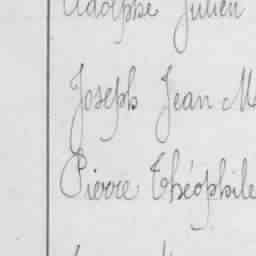 Adolphe Julien
Joseph Jean M
Pierre Théophile